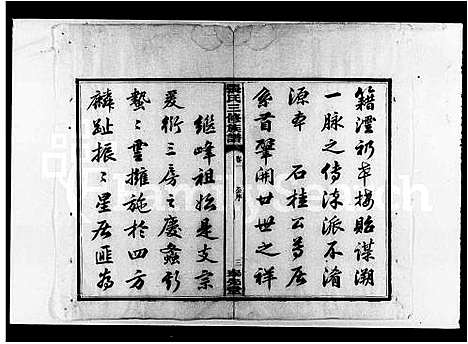 籍澧祈卒接貽謀溯
一脉之傳涂派不淆
源本 石桂公尊居
系首肇開廿世之祥
張氏三修族譜
卷
三
繼峰祖始是支宗
爰衍三房之慶螽斯
蟄蟄雲擁施於四方
麟趾振振星居匪為
FamilySearch